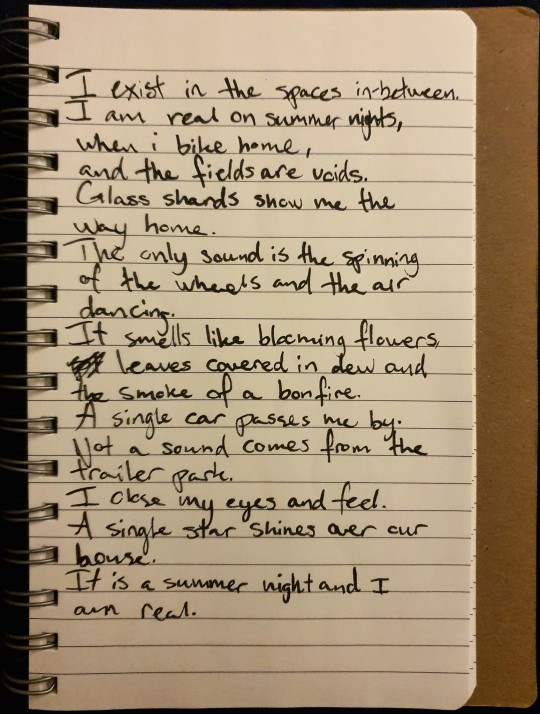 I exist in the spaces in-between.
I am real on summer nights,
when i bike home,
and the fields are voids.
Glass shards show me the
way home.
The only sound is the spinning
of the wheels and the air
dancing.
It smells like blooming flowers,
leaves covered in dew and
the smoke of a bonfire.
A single car passes me by.
Not a sound comes from the
trailer park.
I close my eyes and feel.
A single star shines over our
house.
It is a summer night and I
am real.